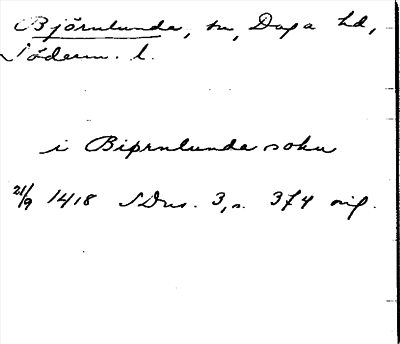 Björnlunda, sn, Daga hd,
Söderm. l.
i Biprnlunda sokn
21/9 1418 SDns. 3, s. 374 orig.